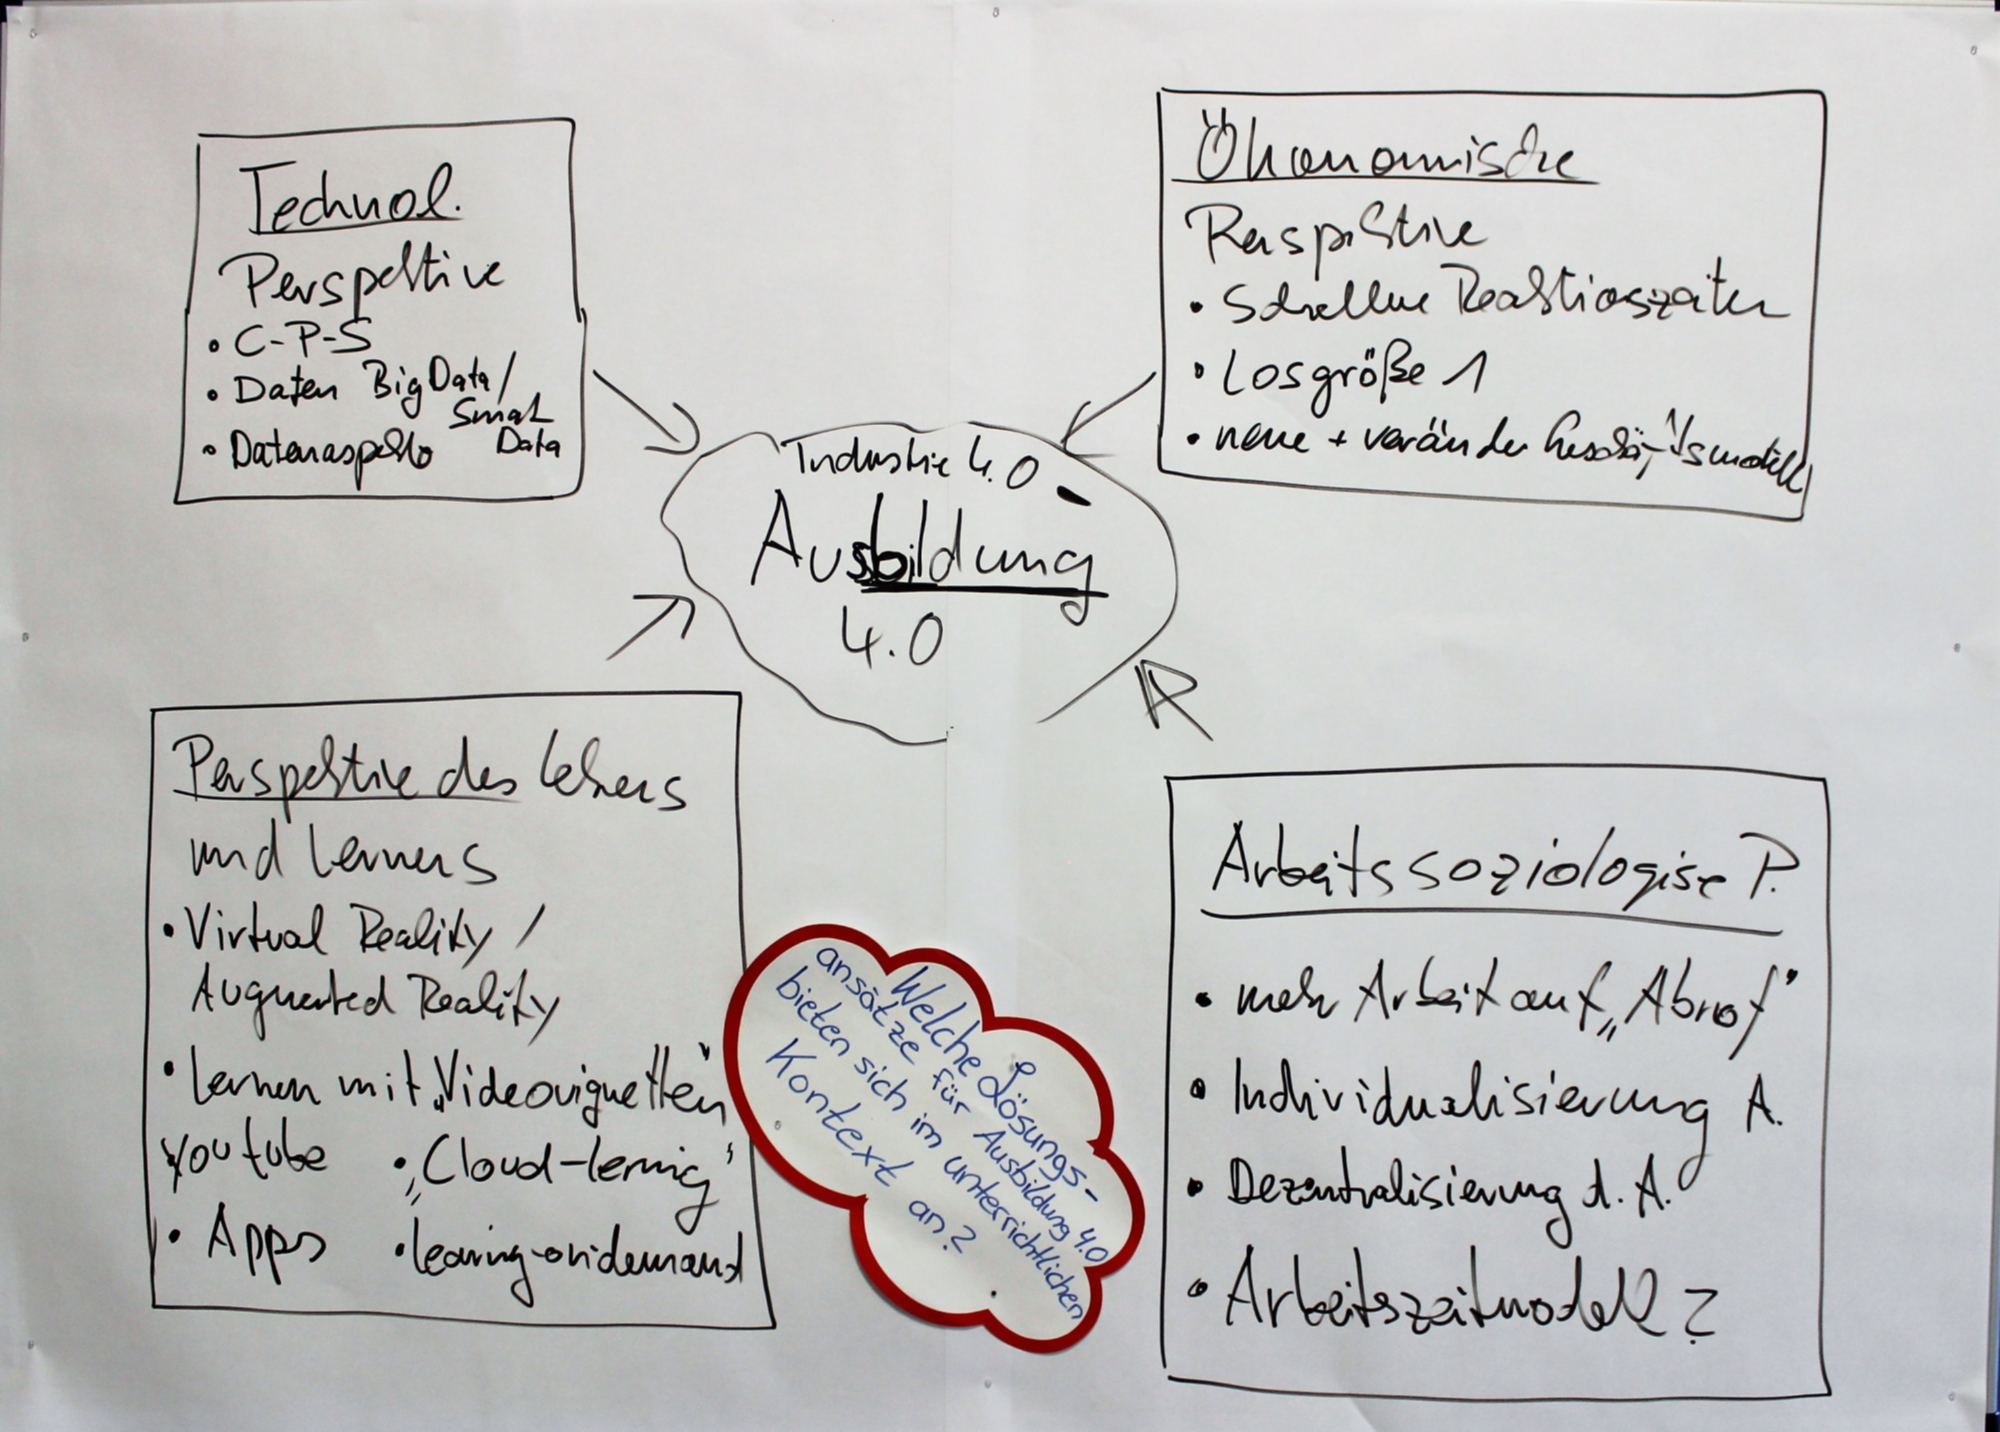 Technol.
Perspektive
• C-P-S
• Daten Big Data/
Smart
Data
• Datenaspekte
Ökonomische
Perspektive
• Schnelle Reaktionszeiten
• Losgröße 1
• neue + veränder Geschäftsmodell
Industrie 4.0 -
Ausbildung
4.0
Perspektive des Lehrers
und Lerners
• Virtual Reality /
Augmented Reality
• Lernen mit „Videovignetten"
Youtube • „Cloud-lerning"
• Apps • learing-on-demand
Welche Lösungs-
ansätze für Ausbildung 4.0
bieten sich im unterrichtlichen
Kontext an?
Arbeitssoziologise P.
• mehr Arbeit auf „Abruf"
• Individualisierung A.
• Dezentralisierung d. A.
• Arbeitszeitmodell ?